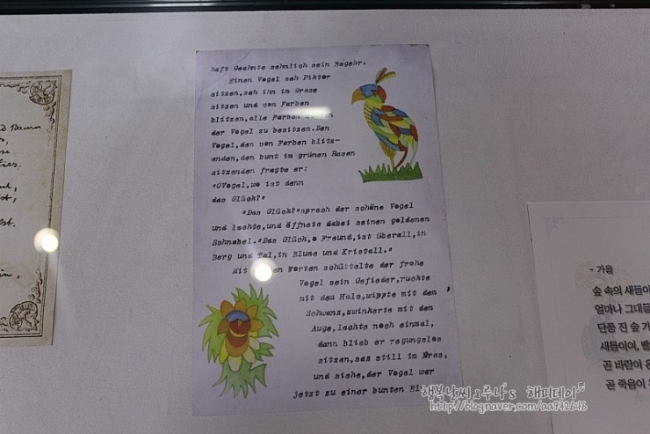 haft Geahnte sehnlich sein Begehr.
Einen Vogel sah Piktor
sitzen,sah ihn im Grase
sitzen und von Farben
blitzen,alle Farben
der Vogel zu besitzen.Den
Vogel,den von Farben blitz-
enden,den bunt im grünen Rasen
sitzenden fragte er:
«OVogel,wo ist denn
das Glück?»
«Das Glück?»sprach der schöne Vogel
und lachte,und öffnete dabei seinen goldenen
Schnabel.«Das Glück,o Freund,ist überall,in
Berg und Tal,in Blume und Kristall.»
Mit Worten schüttelte der frohe
Vogel sein Gefieder,ruckte
mit dem Hals,wippte mit dem
Schwanz,zwinkerte mit dem
Auge,lachte noch einmal,
dann blieb er regungslos
sitzen,sas still im Gras,
und siehe,der Vogel war
jetzt zu einer bunten
- 가을
숲 속의 새들이
얼마나 그대들
단풍 진 숲 가
새들이여,
곧 바람이
곧 죽음이
http://blog.naver.com/aa942646